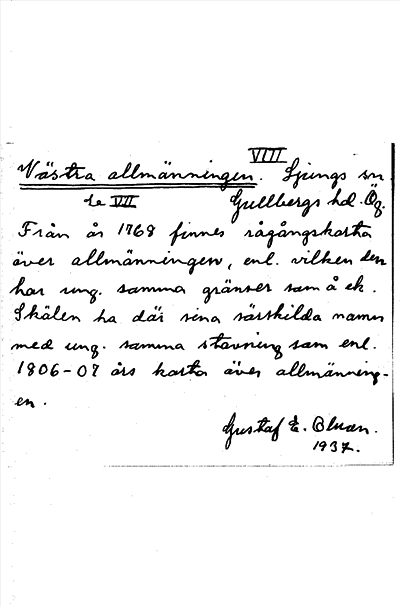 VIII
Västra allmänningen. Ljungs sn
se VII Gullbergs hd. Ög.
Från år 1768 finnes rågångskarta
över allmänningen, enl. vilken den
har ung. samma gränser som å ek.
Skälen ha där sina särskilda namn
med ung. samma stavning som enl.
1806-07 års karta över allmänning-
en.
Gustaf E. Olman.
1937.